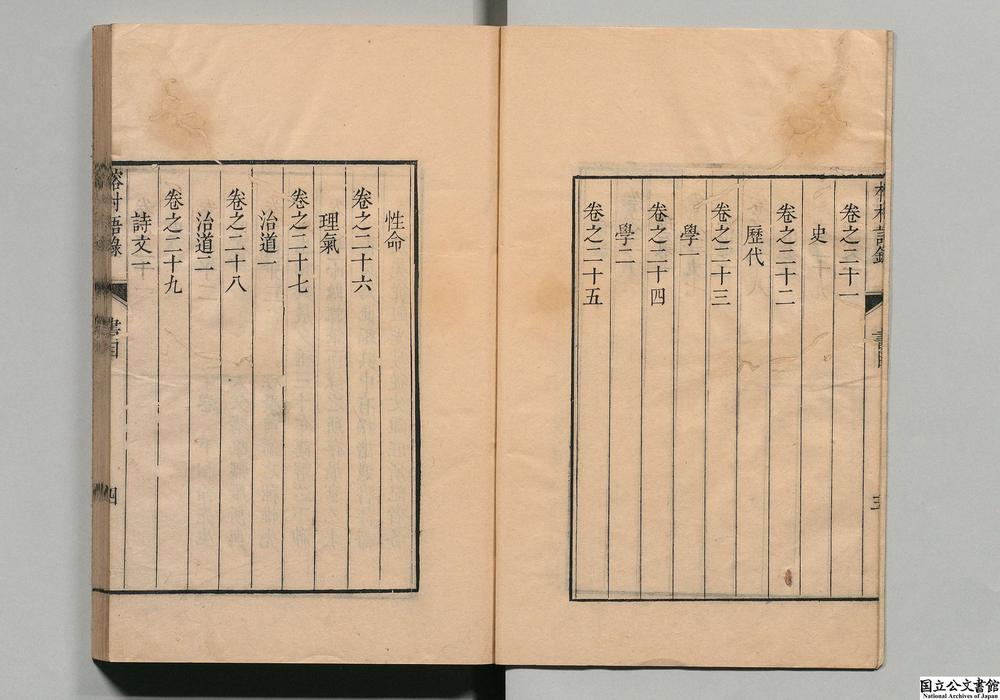 卷之二十一
史
卷之二十二
歷代
卷之二十三
學一
卷之二十四
學二
卷之二十五
性命
卷之二十六
理氣
卷之二十七
治道一
卷之二十八
治道二
卷之二十九
詩文一
榕村語錄
書目
四
三
国立公文書館
National Archives of Japan